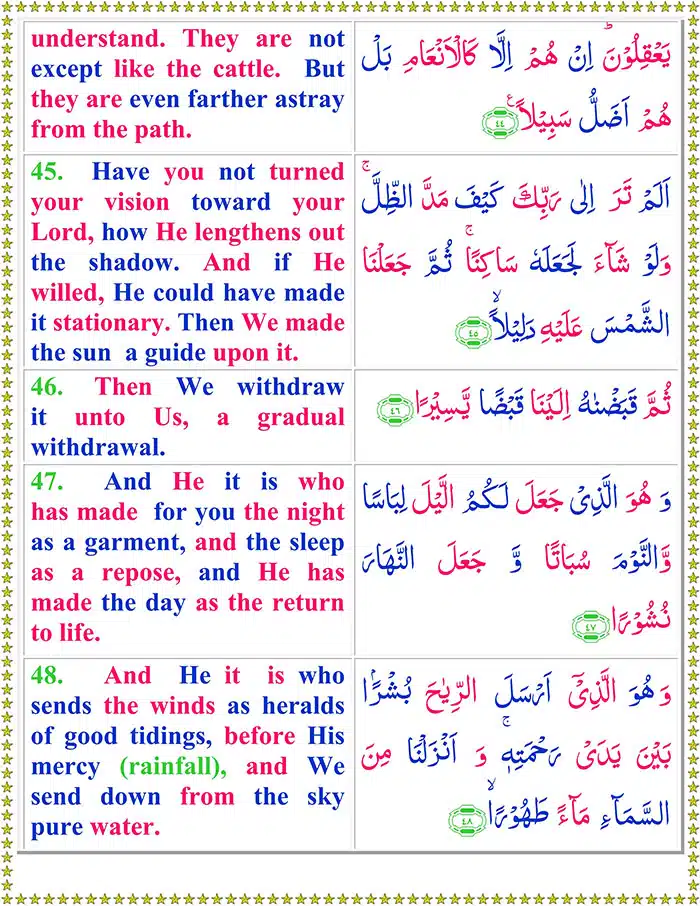 understand. They are not
except like the cattle. But
they are even farther astray
from the path.
یَعْقِلُوْنَ ؕ اِنْ هُمْ اِلَّا كَالْاَنْعَامِ بَلْ
هُمْ اَضَلُّ سَبِیْلًا ۠ ﴿۴۴﴾
45. Have you not turned
your vision toward your
Lord, how He lengthens out
the shadow. And if He
willed, He could have made
it stationary. Then We made
the sun a guide upon it.
اَلَمْ تَرَ اِلٰی رَبِّكَ كَیْفَ مَدَّ الظِّلَّ ۚ
وَلَوْ شَآءَ لَجَعَلَهٗ سَاكِنًا ۚ ثُمَّ جَعَلْنَا
الشَّمْسَ عَلَیْهِ دَلِیْلًا ۙ ﴿۴۵﴾
46. Then We withdraw
it unto Us, a gradual
withdrawal.
ثُمَّ قَبَضْنٰهُ اِلَیْنَا قَبْضًا یَّسِیْرًا ﴿۴۶﴾
47. And He it is who
has made for you the night
as a garment, and the sleep
as a repose, and He has
made the day as the return
to life.
وَ هُوَ الَّذِیْ جَعَلَ لَكُمُ الَّیْلَ لِبَاسًا
وَّالنَّوْمَ سُبَاتًا وَّ جَعَلَ النَّهَارَ
نُشُوْرًا ﴿۴۷﴾
48. And He it is who
sends the winds as heralds
of good tidings, before His
mercy (rainfall), and We
send down from the sky
pure water.
وَ هُوَ الَّذِیْۤ اَرْسَلَ الرِّیٰحَ بُشْرًۢا
بَیْنَ یَدَیْ رَحْمَتِهٖ ۚ وَ اَنْزَلْنَا مِنَ
السَّمَآءِ مَآءً طَهُوْرًا ۙ ﴿۴۸﴾